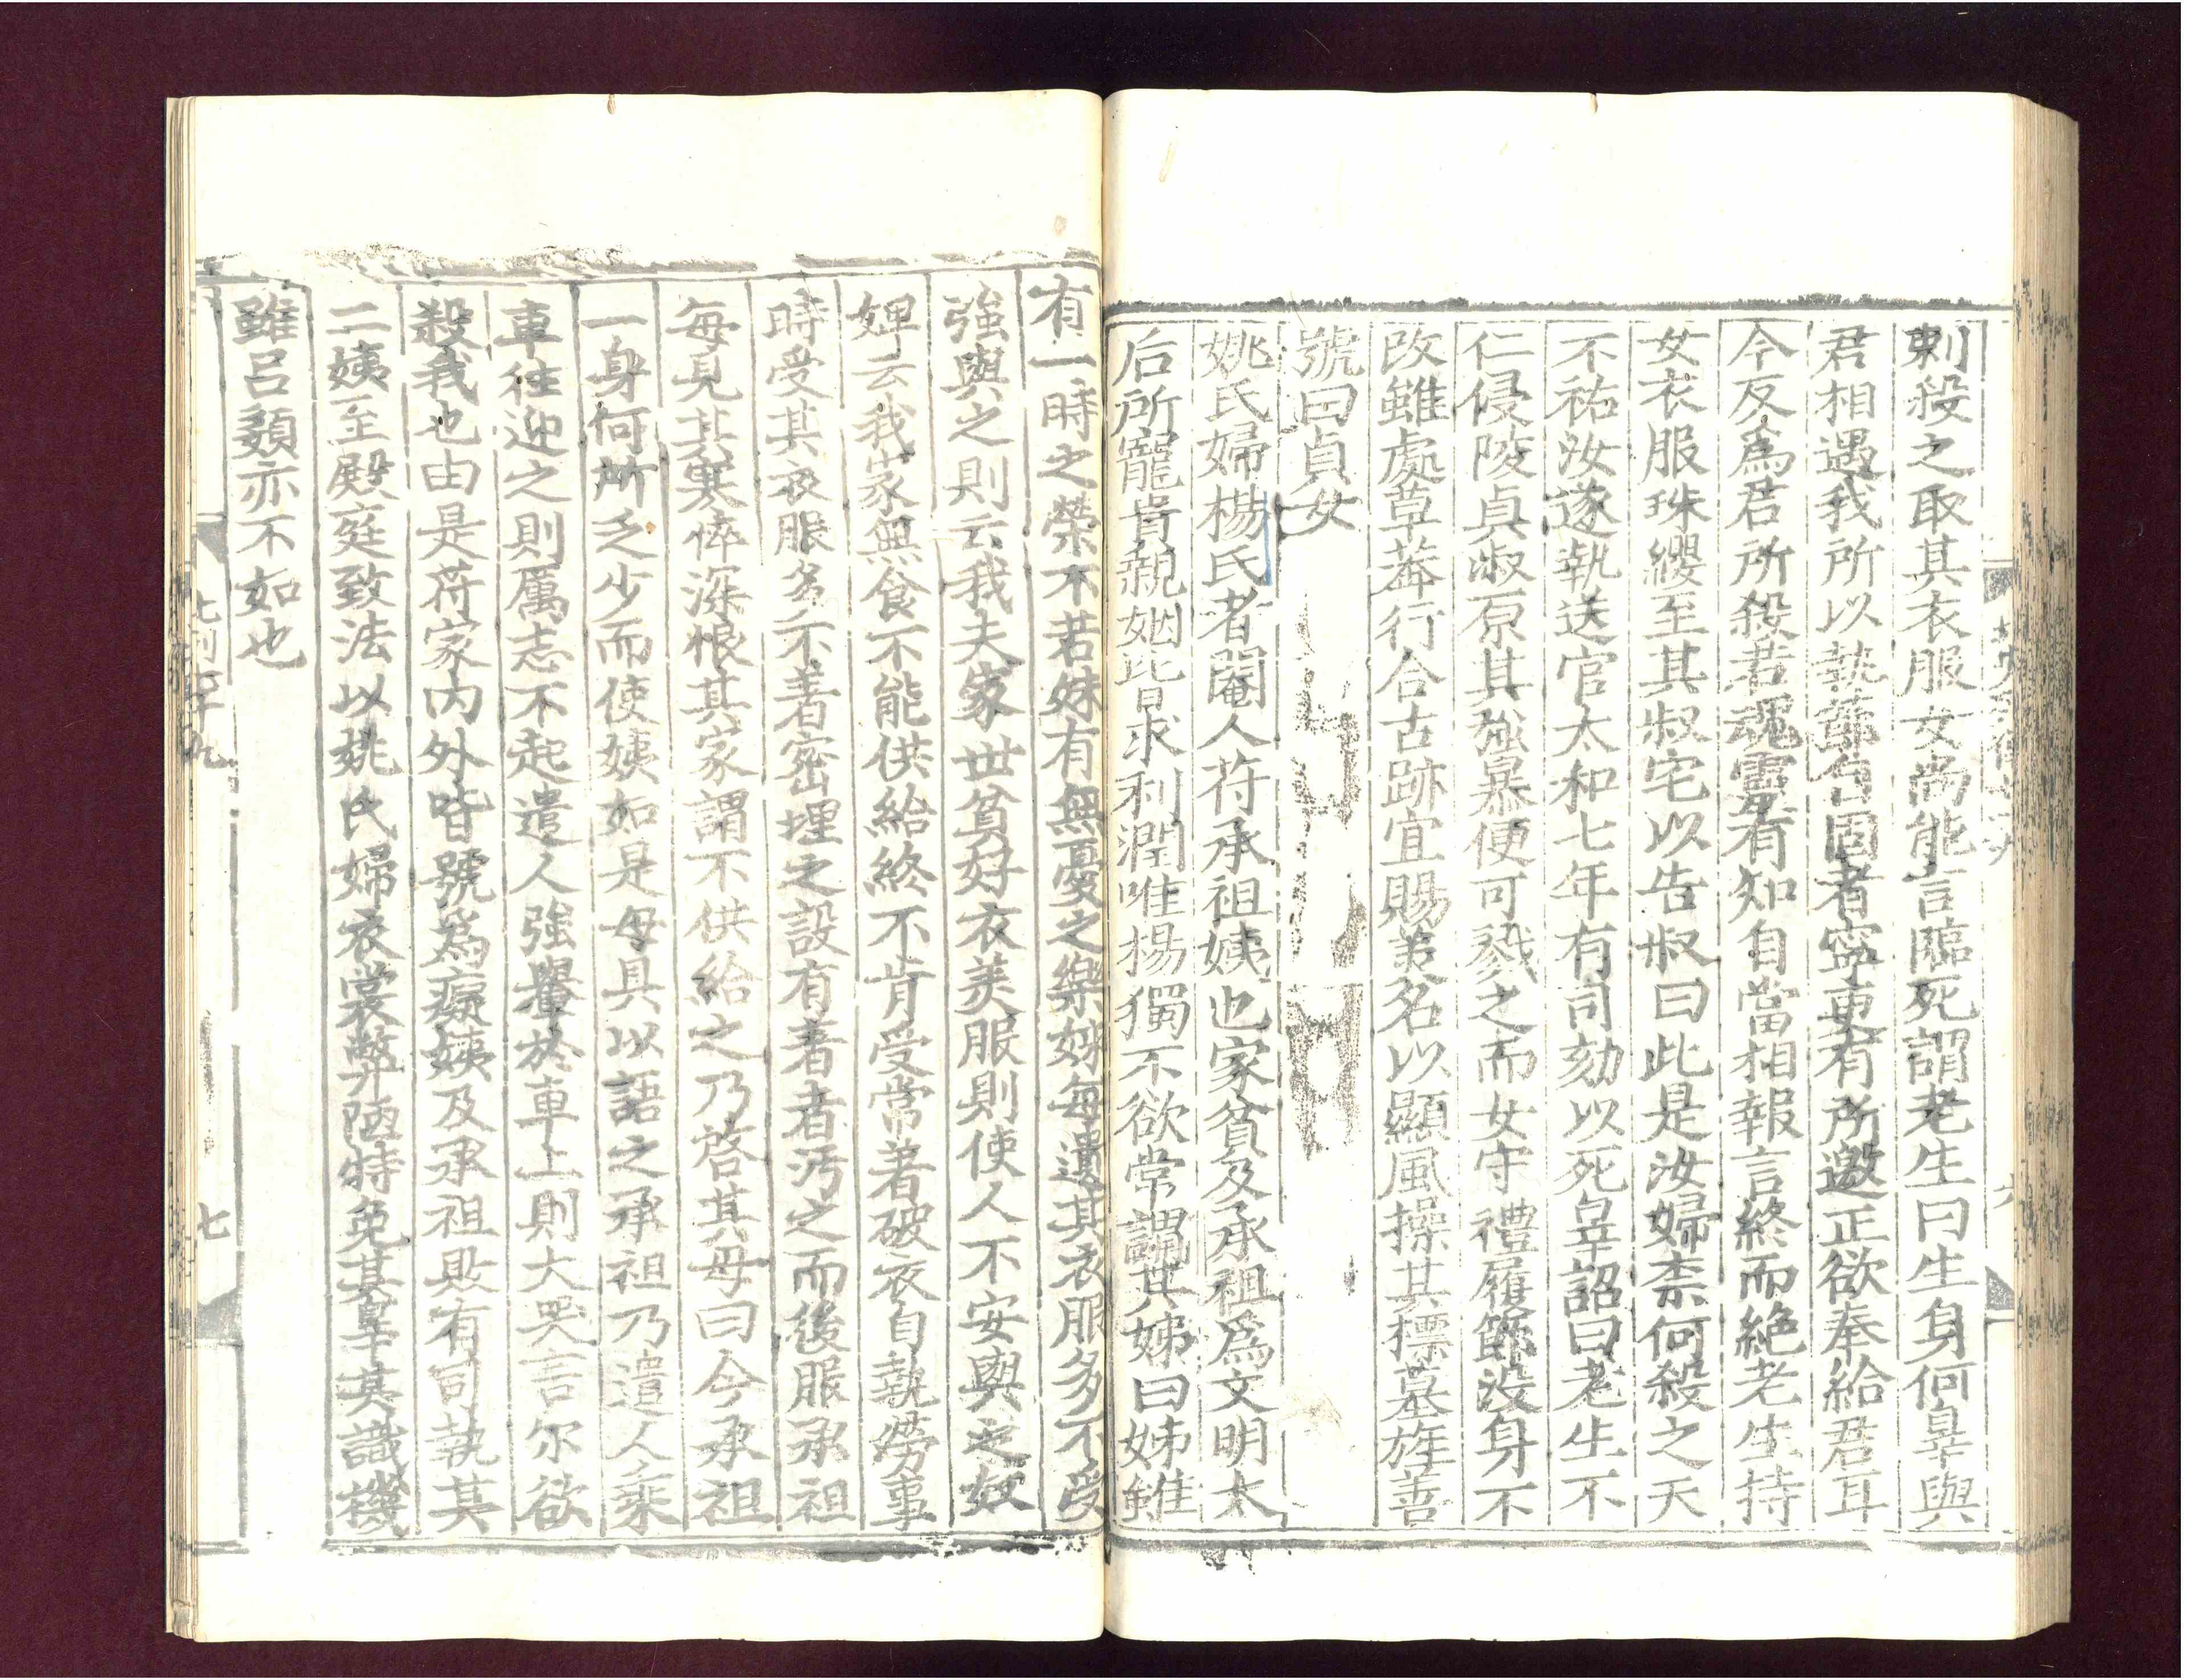 刺殺之取其衣服女尚能言臨死謂老生曰生身何辠與
君相遇我所以執節自固者寧更有所邀正欲奉給君耳
今反爲君所殺若魂靈有知自當相報言終而絶老生持
女衣服珠纓至其叔宅以告叔曰此是汝婦柰何殺之天
不祐汝遂執送官太和七年有司劾以死辠詔曰老生不
仁侵陵貞淑原其強暴便可戮之而女守禮履節没身不
改雖處草莽行合古跡宜賜美名以顯風操其摽墓旌善
號曰貞女
姚氏婦楊氏者閹人苻承祖姨也家貧及承祖爲文明太
后所寵貴親姻皆求利潤唯楊獨不欲常謂其姊曰姊雖
有一時之榮不若妹有無憂之樂姊每遺其衣服多不受
強與之則云我夫家世貧好衣美服則使人不安與之奴
婢云我家無食不能供給終不肯受常著破衣自執勞事
時受其衣服多不著密埋之設有著者汚之而後服承祖
每見其寒悴深恨其家謂不供給之乃啓其母曰今承祖
一身何所乏少而使姨如是母具以語之承祖乃遣人乘
車往迎之則厲志不起遣人強轝於車上則大哭言尔欲
殺我也由是苻家内外皆號爲癡姨及承祖敗有司執其
二姨至殿庭致法以姚氏婦衣裳弊陋特免其辠其識機
雖呂嬃亦不如也
七